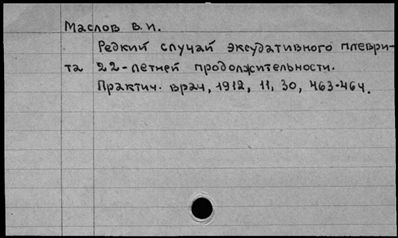 Маслов В.И.
Редкий случай эксудативного плеври-
та 22-летней продолжительности.
Практич. врач, 1912, 11, 30, 463-464.